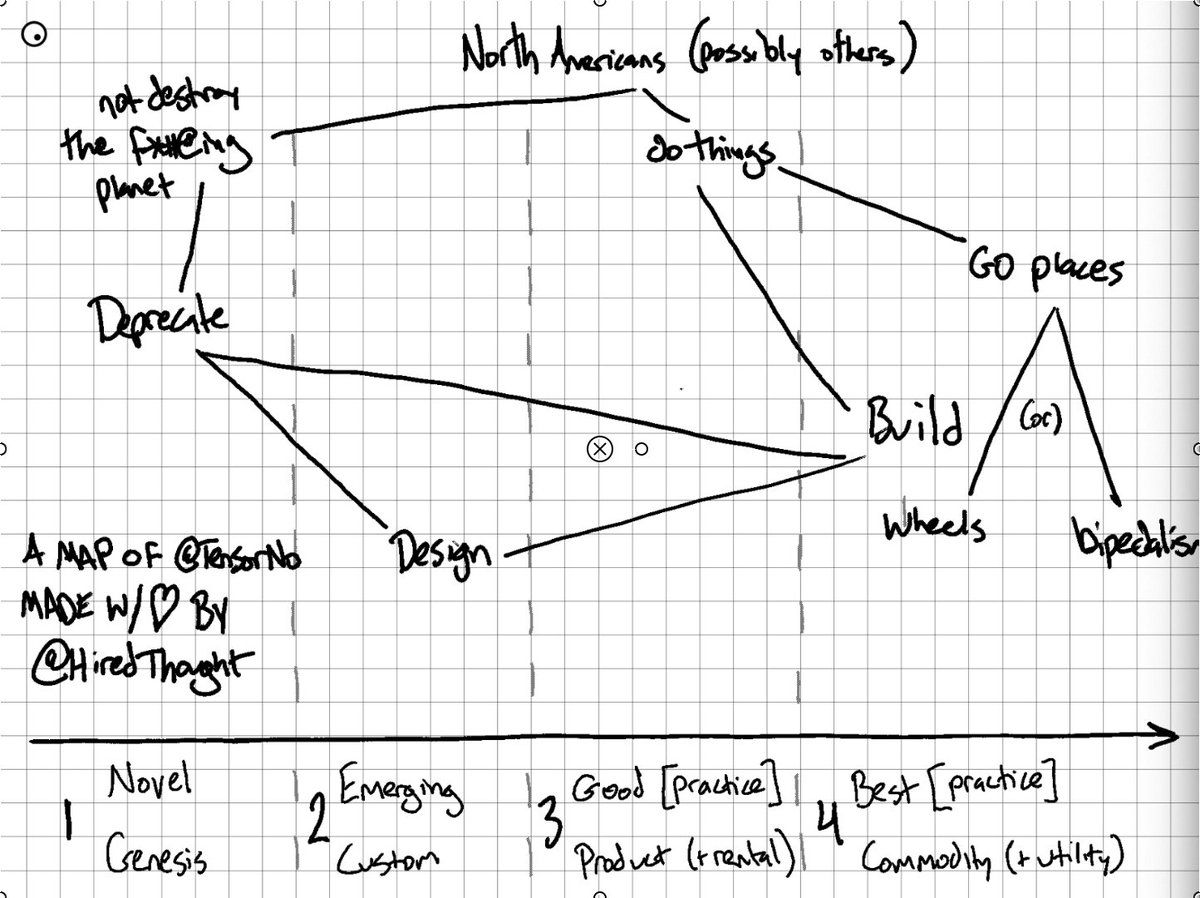 North Americans (possibly others)
not destroy
the f*#@ing
planet
do things
Go places
Deprecate
Build
(or)
Wheels
bipedalism
Design
A MAP OF @TensorNo
MADE W/♡ BY
@HiredThought
1 Novel
Genesis
2 Emerging
Custom
3 Good [practice]
Product (+rental)
4 Best [practice]
Commodity (+utility)